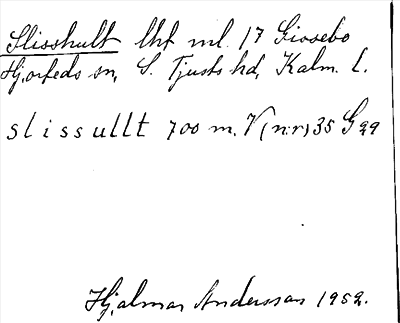 Slisshult lht nl. 17 Giosebo
Hjorteds sn, S. Tjusts hd, Kalm. l.
slissullt 700 m. V (n:r) 35 G 99
Hjalmar Andersson 1952.